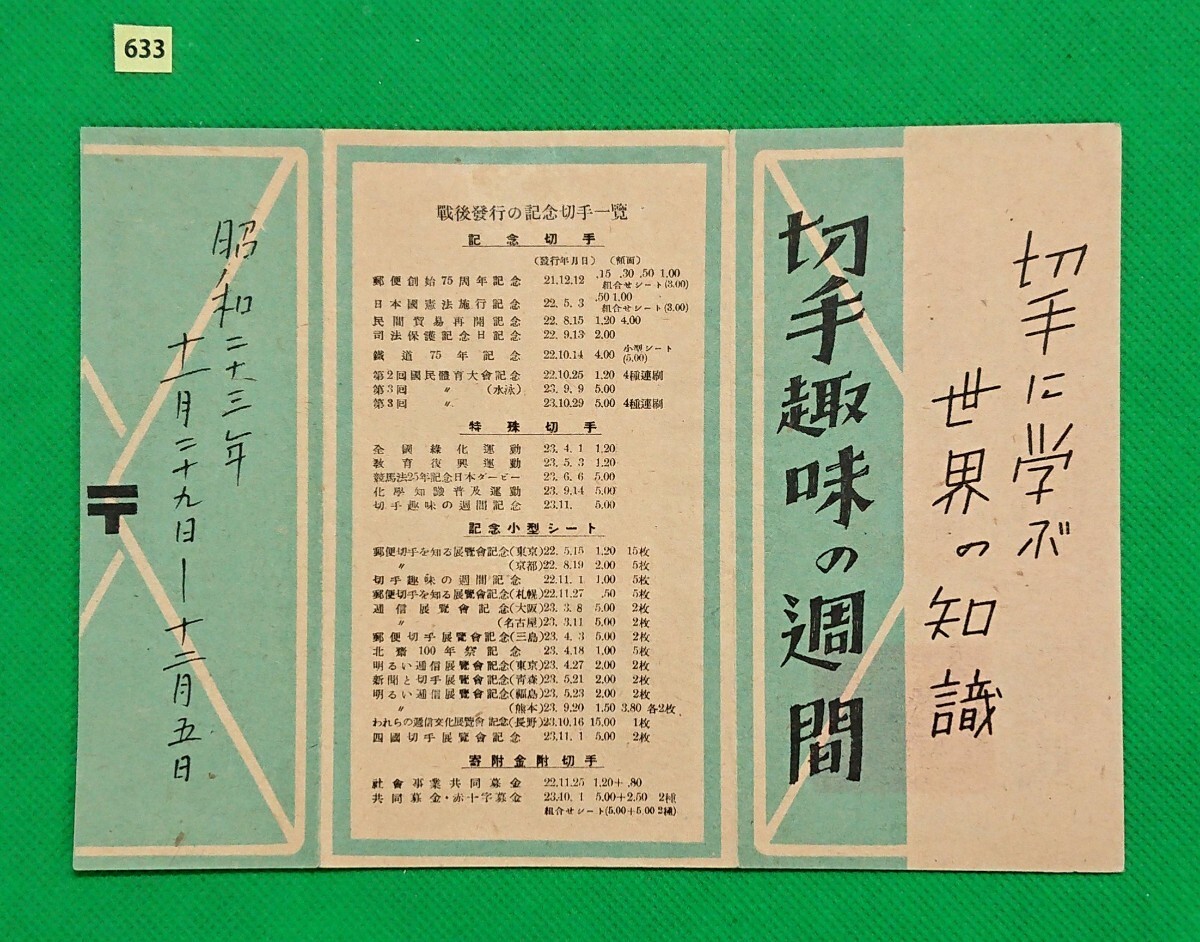 633
切手に学ぶ
世界の知識
切手趣味の週間
戰後發行の記念切手一覽
記念切手
(發行年月日) (額面)
郵便創始75周年記念 21.12.12 .15 .30 .50 1.00
組合せシート(3.00)
日本國憲法施行記念 22. 5. 3 .50 1.00
組合せシート(3.00)
民間貿易再開記念 22. 8.15 1.20 4.00
司法保護記念日記念 22. 9.13 2.00
鐵道75年記念 22.10.14 4.00 小型シート
(5.00)
第2回國民體育大會記念 22.10.25 1.20 4種連刷
第3回 〃 (水泳) 23. 9. 9 5.00
第3回 〃 23.10.29 5.00 4種連刷
特殊切手
全國綠化運動 23. 4. 1 1.20
教育復興運動 23. 5. 3 1.20
競馬法25年記念日本ダービー 23. 6. 6 5.00
化學知識普及運動 23. 9.14 5.00
切手趣味の週間記念 23.11. 5.00
記念小型シート
郵便切手を知る展覽會記念(東京) 22. 5.15 1.20 15枚
〃 (京都) 22. 8.19 2.00 5枚
切手趣味の週間記念 22.11. 1 1.00 5枚
郵便切手を知る展覽會記念(札幌) 22.11.27 .50 5枚
通信展覽會記念(大阪) 23. 3. 8 5.00 2枚
〃 (名古屋) 23. 3.11 5.00 2枚
郵便切手展覽會記念(三島) 23. 4. 3 5.00 2枚
北齋100年祭記念 23. 4.18 1.00 5枚
明るい通信展覽會記念(東京) 23. 4.27 2.00 2枚
新聞と切手展覽會記念(靑森) 23. 5.21 2.00 2枚
明るい通信展覽會記念(福島) 23. 5.23 2.00 2枚
〃 (熊本) 23. 9.20 1.50 3.80 各2枚
われらの逓信文化展覽會記念(長野) 23.10.16 15.00 1枚
四國切手展覽會記念 23.11. 1 5.00 2枚
寄附金附切手
社會事業共同募金 22.11.25 1.20+.80
共同募金・赤十字募金 23.10. 1 5.00+2.50 2種
組合せシート(5.00+5.00 2種)
昭和二十三年
十一月二十九日—十二月五日
〒